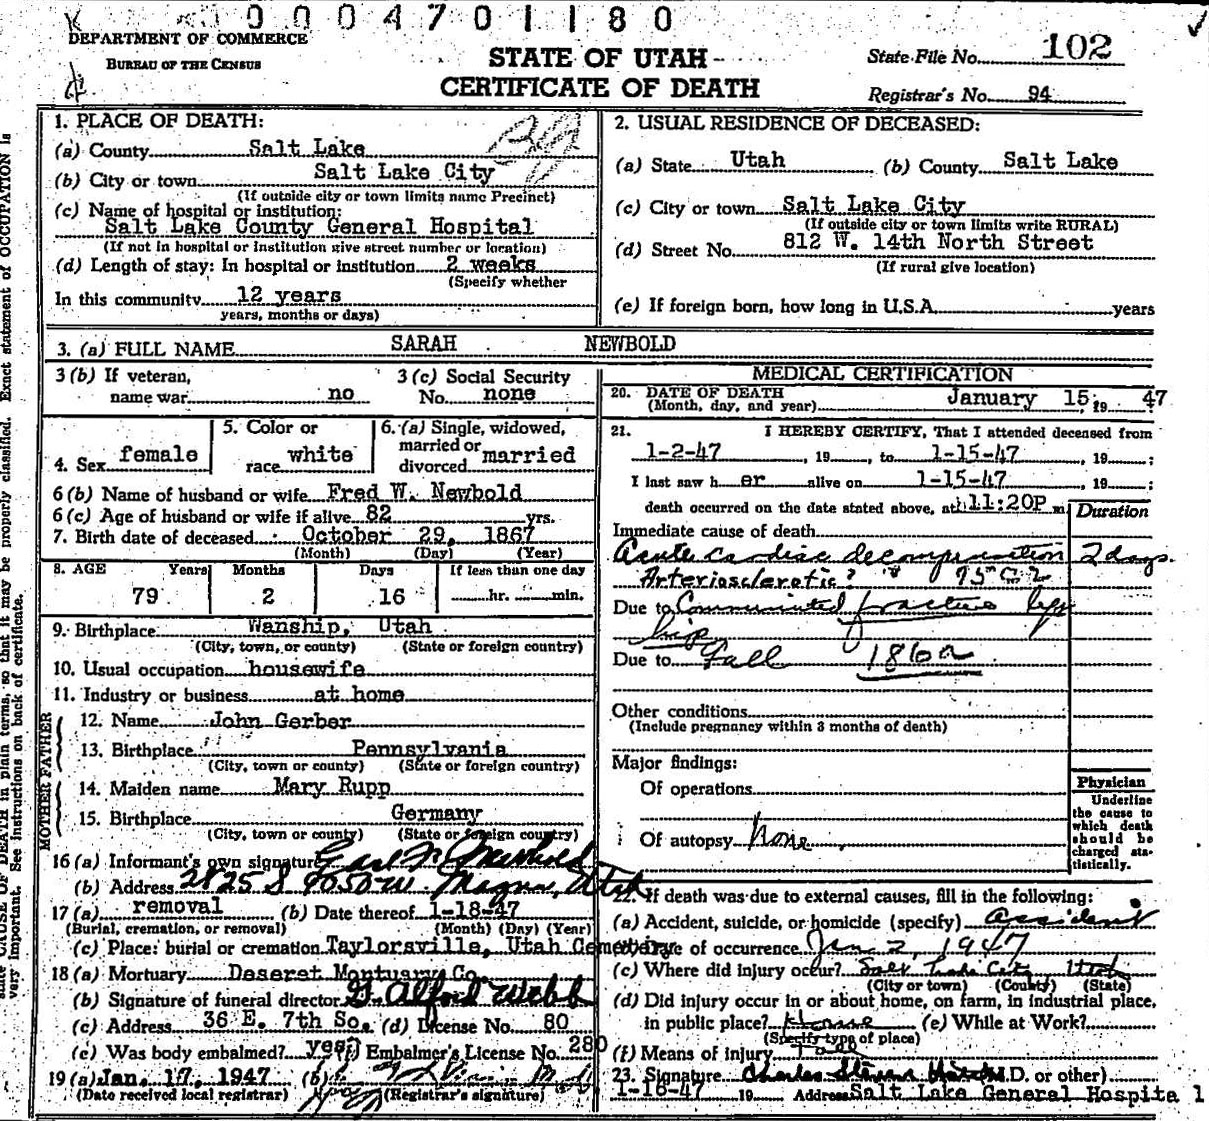 0 0 0 4 7 0 1 1 8 0
DEPARTMENT OF COMMERCE
BUREAU OF THE CENSUS
STATE OF UTAH
CERTIFICATE OF DEATH
State File No. 102
Registrar's No. 94
1. PLACE OF DEATH:
(a) County Salt Lake
(b) City or town Salt Lake City
(If outside city or town limits name Precinct)
(c) Name of hospital or institution:
Salt Lake County General Hospital
(If not in hospital or institution give street number or location)
(d) Length of stay: In hospital or institution 2 weeks
(Specify whether
In this community 12 years
years, months or days)
2. USUAL RESIDENCE OF DECEASED:
(a) State Utah (b) County Salt Lake
(c) City or town Salt Lake City
(If outside city or town limits write RURAL)
(d) Street No. 812 W. 14th North Street
(If rural give location)
(e) If foreign born, how long in U.S.A. years
3. (a) FULL NAME SARAH NEWBOLD
3 (b) If veteran, name war no
3 (c) Social Security No. none
4. Sex female
5. Color or race white
6. (a) Single, widowed, married or divorced married
6 (b) Name of husband or wife Fred W. Newbold
6 (c) Age of husband or wife if alive 82 yrs.
7. Birth date of deceased October 29, 1867
(Month) (Day) (Year)
8. AGE Years Months Days If less than one day
79 2 16 hr. min.
9. Birthplace Wanship, Utah
(City, town, or county) (State or foreign country)
10. Usual occupation housewife
11. Industry or business at home
FATHER
12. Name John Gerber
13. Birthplace Pennsylvania
(City, town or county) (State or foreign country)
MOTHER
14. Maiden name Mary Rupp
15. Birthplace Germany
(City, town or county) (State or foreign country)
16 (a) Informant's own signature Newbold
(b) Address 2825 S 9050 W. Magna, Utah
17 (a) removal (b) Date thereof 1-18-47
(Burial, cremation, or removal) (Month) (Day) (Year)
(c) Place: burial or cremation Taylorsville, Utah Cemetery
18 (a) Mortuary Deseret Mortuary Co.
(b) Signature of funeral director G. Alford Webb
(c) Address 36 E. 7th So. (d) License No. 80
(e) Was body embalmed? yes (f) Embalmer's License No. 280
19 (a) Jan. 17, 1947 (b)
(Date received local registrar) (Registrar's signature)
MEDICAL CERTIFICATION
20. DATE OF DEATH
(Month, day, and year) January 15, 19 47
21. I HEREBY CERTIFY, That I attended deceased from
1-2-47, 19 , to 1-15-47, 19 ;
I last saw h er alive on 1-15-47, 19 ;
death occurred on the date stated above, at 11:20P m.
Duration
Immediate cause of death
Acute cardiac decompensation 2 days.
Arteriosclerotic?
Due to Comminuted fracture left
hip
Due to Fall 186a
Other conditions
(Include pregnancy within 3 months of death)
Major findings:
Of operations
Of autopsy None
Physician
Underline
the cause to
which death
should be
charged sta-
tistically.
22. If death was due to external causes, fill in the following:
(a) Accident, suicide, or homicide (specify) Accident
Date of occurrence Jan 2, 1947
(c) Where did injury occur? Salt Lake City, Utah
(City or town) (County) (State)
(d) Did injury occur in or about home, on farm, in industrial place,
in public place? Home (e) While at Work?
(Specify type of place)
(f) Means of injury Fall
23. Signature Charles (M.D. or other)
1-16-47 19 Address Salt Lake General Hospital
CAUSE OF DEATH in plain terms, so that it may be properly classified. Exact statement of OCCUPATION is
very important. See instructions on back of certificate.